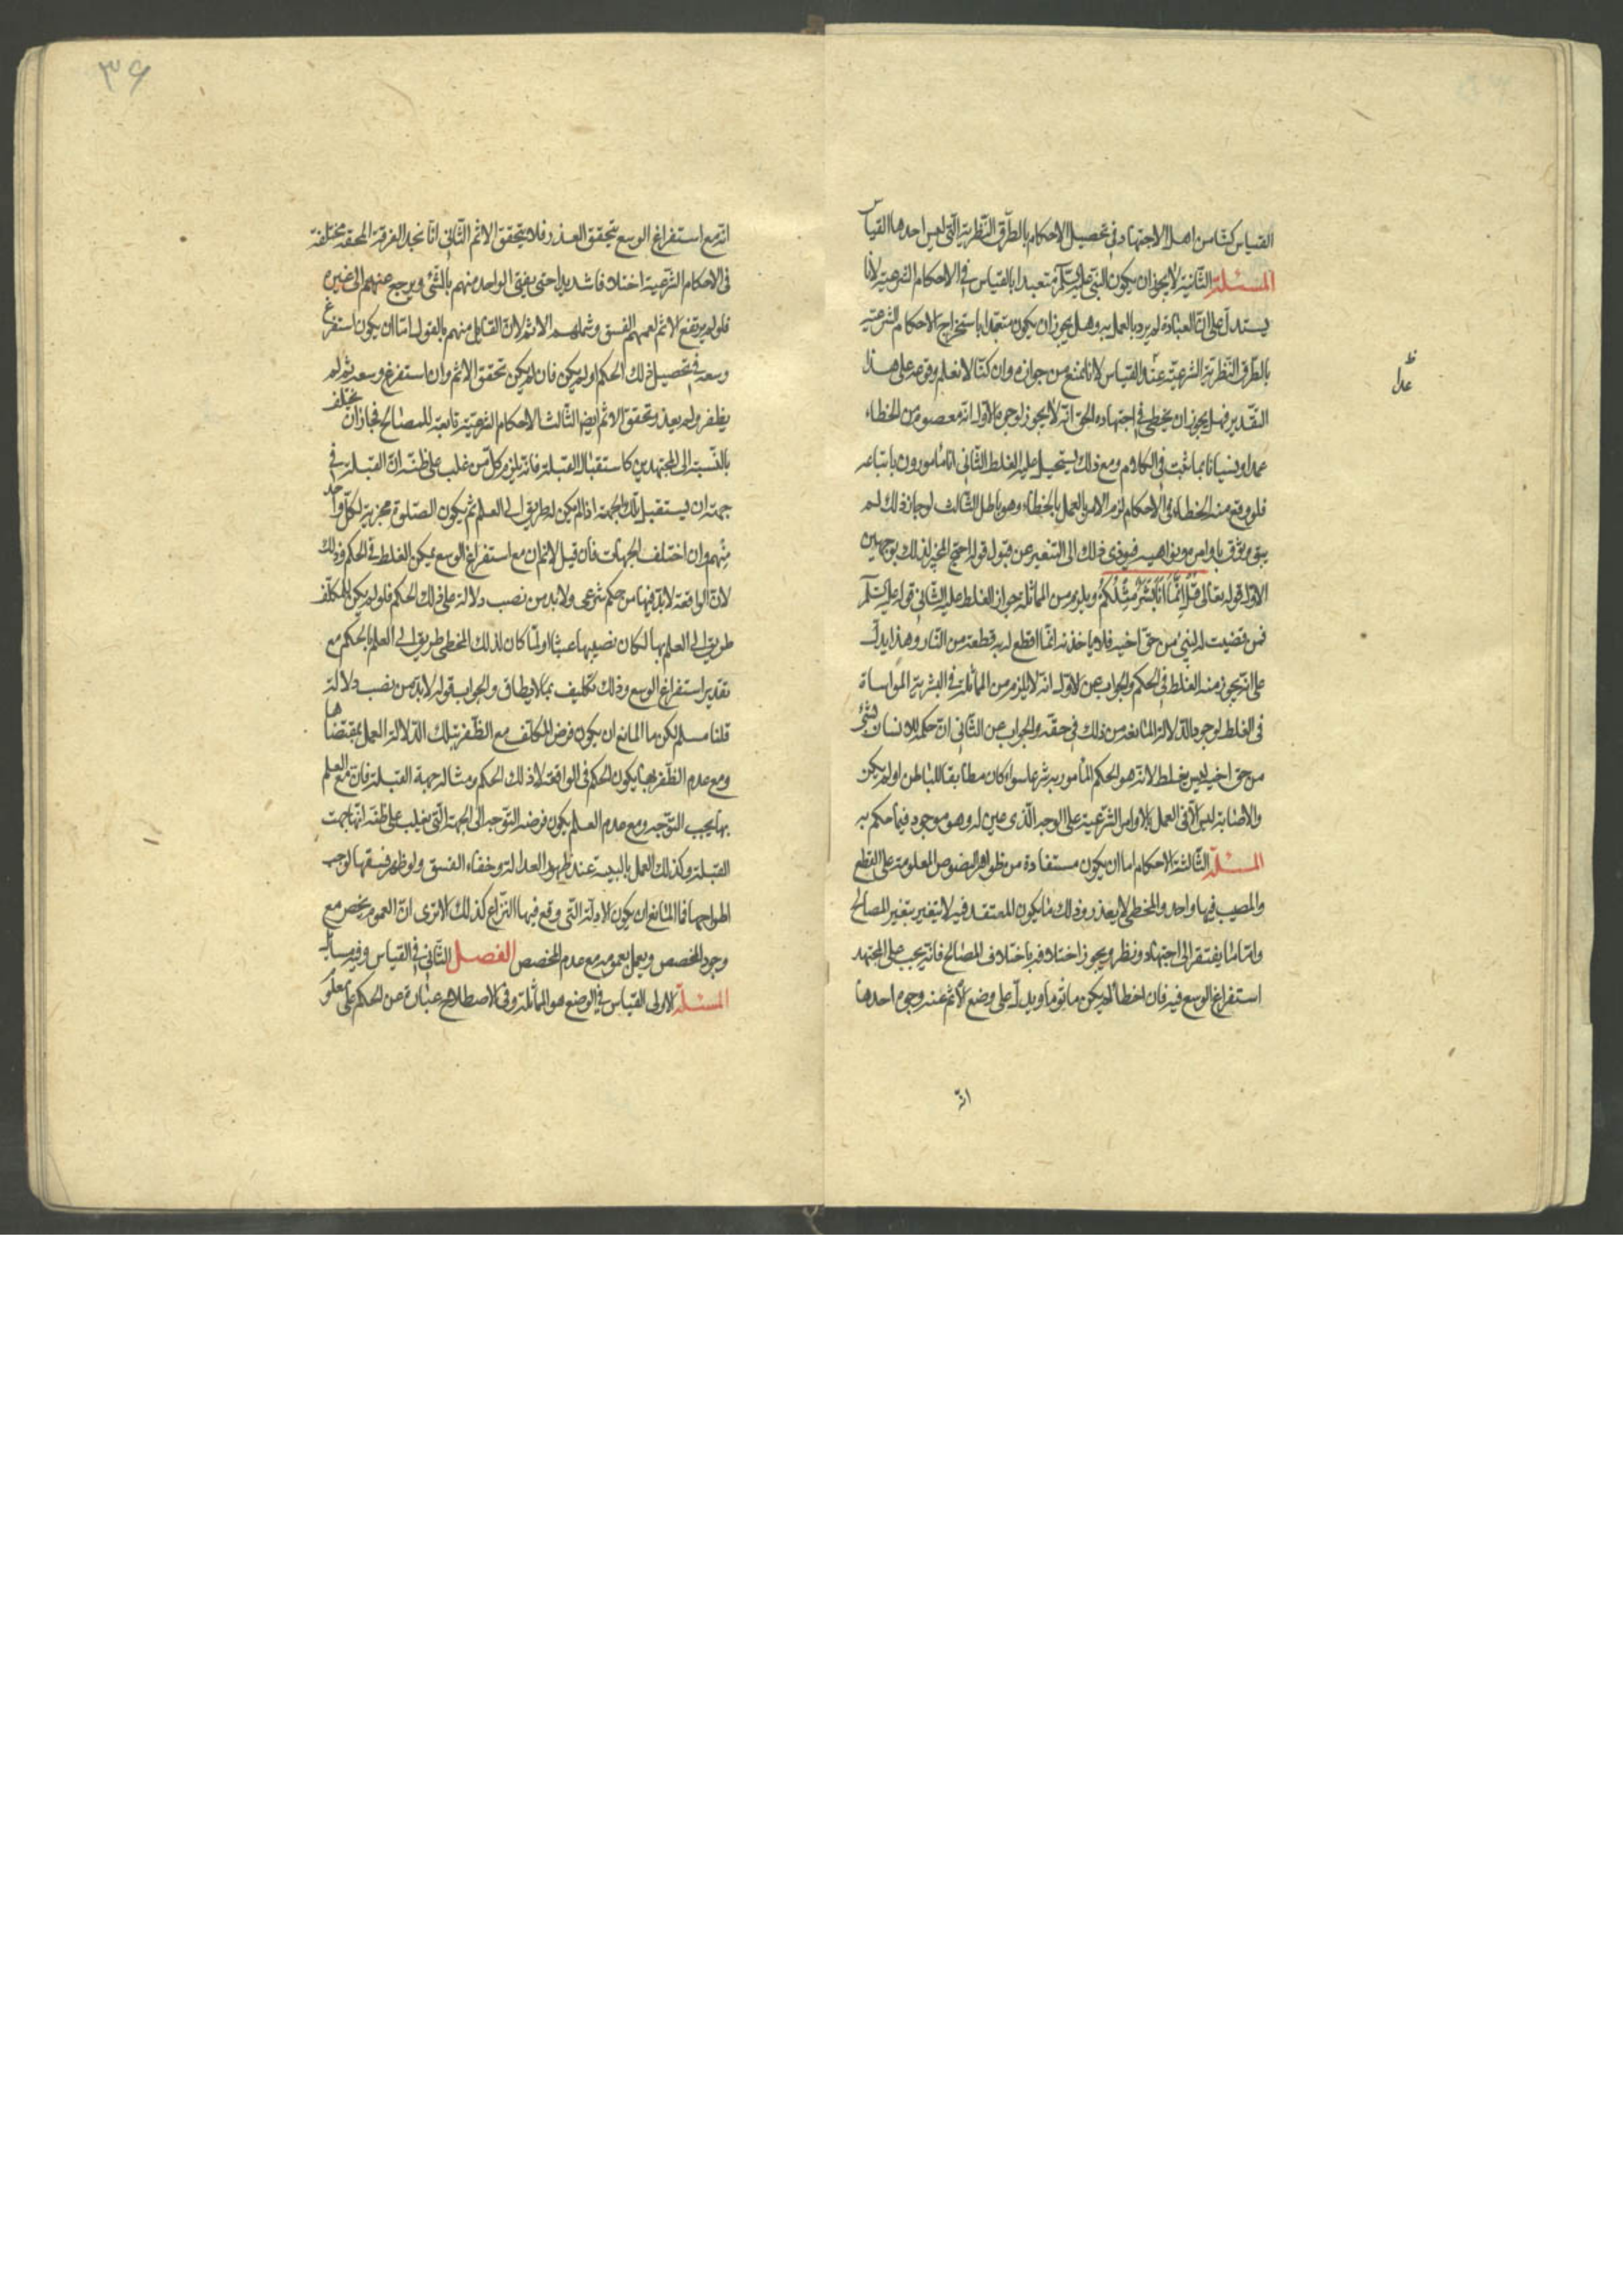 القياس كنا من اهل الاجتهاد في تحصيل الاحكام بالطرق النظرية التي ليس احدها القياس
المسئلة الثانية لا يجوز ان يكون النبي عليه السلام متعبدا بالقياس في الاحكام الشرعية لانا
يستدل على ان العبادة لم يرد بالعمل به وهل يجوز ان يكون متعبدا باستخراج الاحكام الشرعية
بالطرق النظرية الشرعية عدا القياس لا نمنع من جوازه وان كنا لا نعلم وقوعه على هذا
التقدير فهل يجوز ان يخطى في اجتهاده الحق انه لا يجوز لوجوه الاول انه معصوم من الخطاء
عمدا ونسيانا بما ثبت في الكلام ومع ذلك يستحيل عليه الغلط الثاني اننا مأمورون باتباعه
فلو وقع منه الخطاء في الاحكام لزم الامر بالعمل بالخطاء وهو باطل الثالث لو جاز ذلك لم
يبق وثوق باوامره ونواهيه فيؤدى ذلك الى التنفير عن قبول قوله احتج المخيز لذلك بوجهين
الاول قوله تعالى قُلْ اِنَّمَا اَنَا بَشَرٌ مِثْلُكُمْ ويلزم من المماثلة جواز الغلط عليه الثاني قوله عليه السلام
فمن قضيت له بشئ من حق اخيه فلا ياخذنه انما اقطع له به قطعة من النار وهذا يدل
على انه يجوز منه الغلط في الحكم والجواب عن الاول انه لا يلزم من المماثلة في البشرية المواساة
في الغلط لوجود الدلالة المانعة من ذلك في حقه والجواب عن الثاني ان حكمه للانسان بشئ
من حق اخيه ليس بغلط لانه هو الحكم المأمور به شرعا سواء كان مطابقا للباطن او لم يكن
والاصابة ليس الا في العمل بالاوامر الشرعية على الوجه الذى عين له وهو موجود فيما حكم به
المسئلة الثالثة الاحكام اما ان يكون مستفادة من ظواهر النصوص المعلومة على القطع
والمصيب فيها واحد والمخطى لا يعذر وذلك ما يكون المعتقد فيه لا يتغير بتغير المصالح
واما ما يفتقر الى اجتهاد ونظر ويجوز اختلافه باختلاف المصالح فانه يجب على المجتهد
استفراغ الوسع فيه فان اخطأ لم يكن مأثوما ويدل على وضع الاثم عنه وجوه احدها
انه
ظ
عدا
٣۶
انه مع استفراغ الوسع يتحقق العذر فلا يتحقق الاثم الثاني انا نجد الفرقة المحقة مختلفة
في الاحكام الشرعية اختلافا شديدا حتى يفتى الواحد منهم بالشئ ويرجع عنهم الى غيره
فلو لم يرتفع الاثم لعمهم الفسق وشملهم الاثم لان القايل منهم بالقول اما ان يكون استفرغ
وسعه في تحصيل ذلك الحكم او لم يكن فان لم يكن تحقق الاثم وان استفرغ وسعه ثم لم
يظفر ولم يعذر تحقق الاثم ايضا الثالث الاحكام الشرعية تابعة للمصالح فجاز ان يختلف
بالنسبة الى المجتهدين كاستقبال القبلة فانه يلزم كل من غلب على ظنه ان القبلة في
جهة ان يستقبل تلك الجهة اذا لم يكن له طريق الى العلم ثم يكون الصلوة مجزية لكل واحد
منهم وان اختلف الجهات فان قيل لا ثم ان مع استفراغ الوسع يمكن الغلط في الحكم وذلك
لان الواقعة لا بد فيها من حكم شرعى ولا بد من نصب دلالة على ذلك الحكم فلو لم يكن للمكلف
طريق الى العلم بها لكان نصبها عبثا ولما كان لذلك المخطى طريق الى العلم بالحكم مع
تقدير استفراغ الوسع وذلك تكليف بما لا يطاق والجواب قوله لا بد من نصب دلالة
قلنا مسلم لكن ما المانع ان يكون فرض المكلف مع الظفر بتلك الدلالة العمل بمقتضاها
ومع عدم الظفر بها يكون الحكم في الواقعة لا ذلك الحكم ومثاله جهة القبلة فان مع العلم
بها يجب التوجه ومع عدم العلم يكون فرضه التوجه الى الجهة التي يغلب على ظنه انها جهت
القبلة وكذلك العمل بالبينة عند ظهور العدالة وخفاء الفسق ولو ظهر فسقها لوجب
اطراحها فما المانع ان يكون الادلة التي وقع فيها النزاع كذلك الا ترى ان العموم يخص مع
وجود المخصص ويعمل بعمومه مع عدم المخصص الفصل الثاني في القياس وفيه مسايل
المسئلة الاولى القياس في الوضع هو المماثلة وفي الاصطلاح عبارة عن الحكم على معلوم